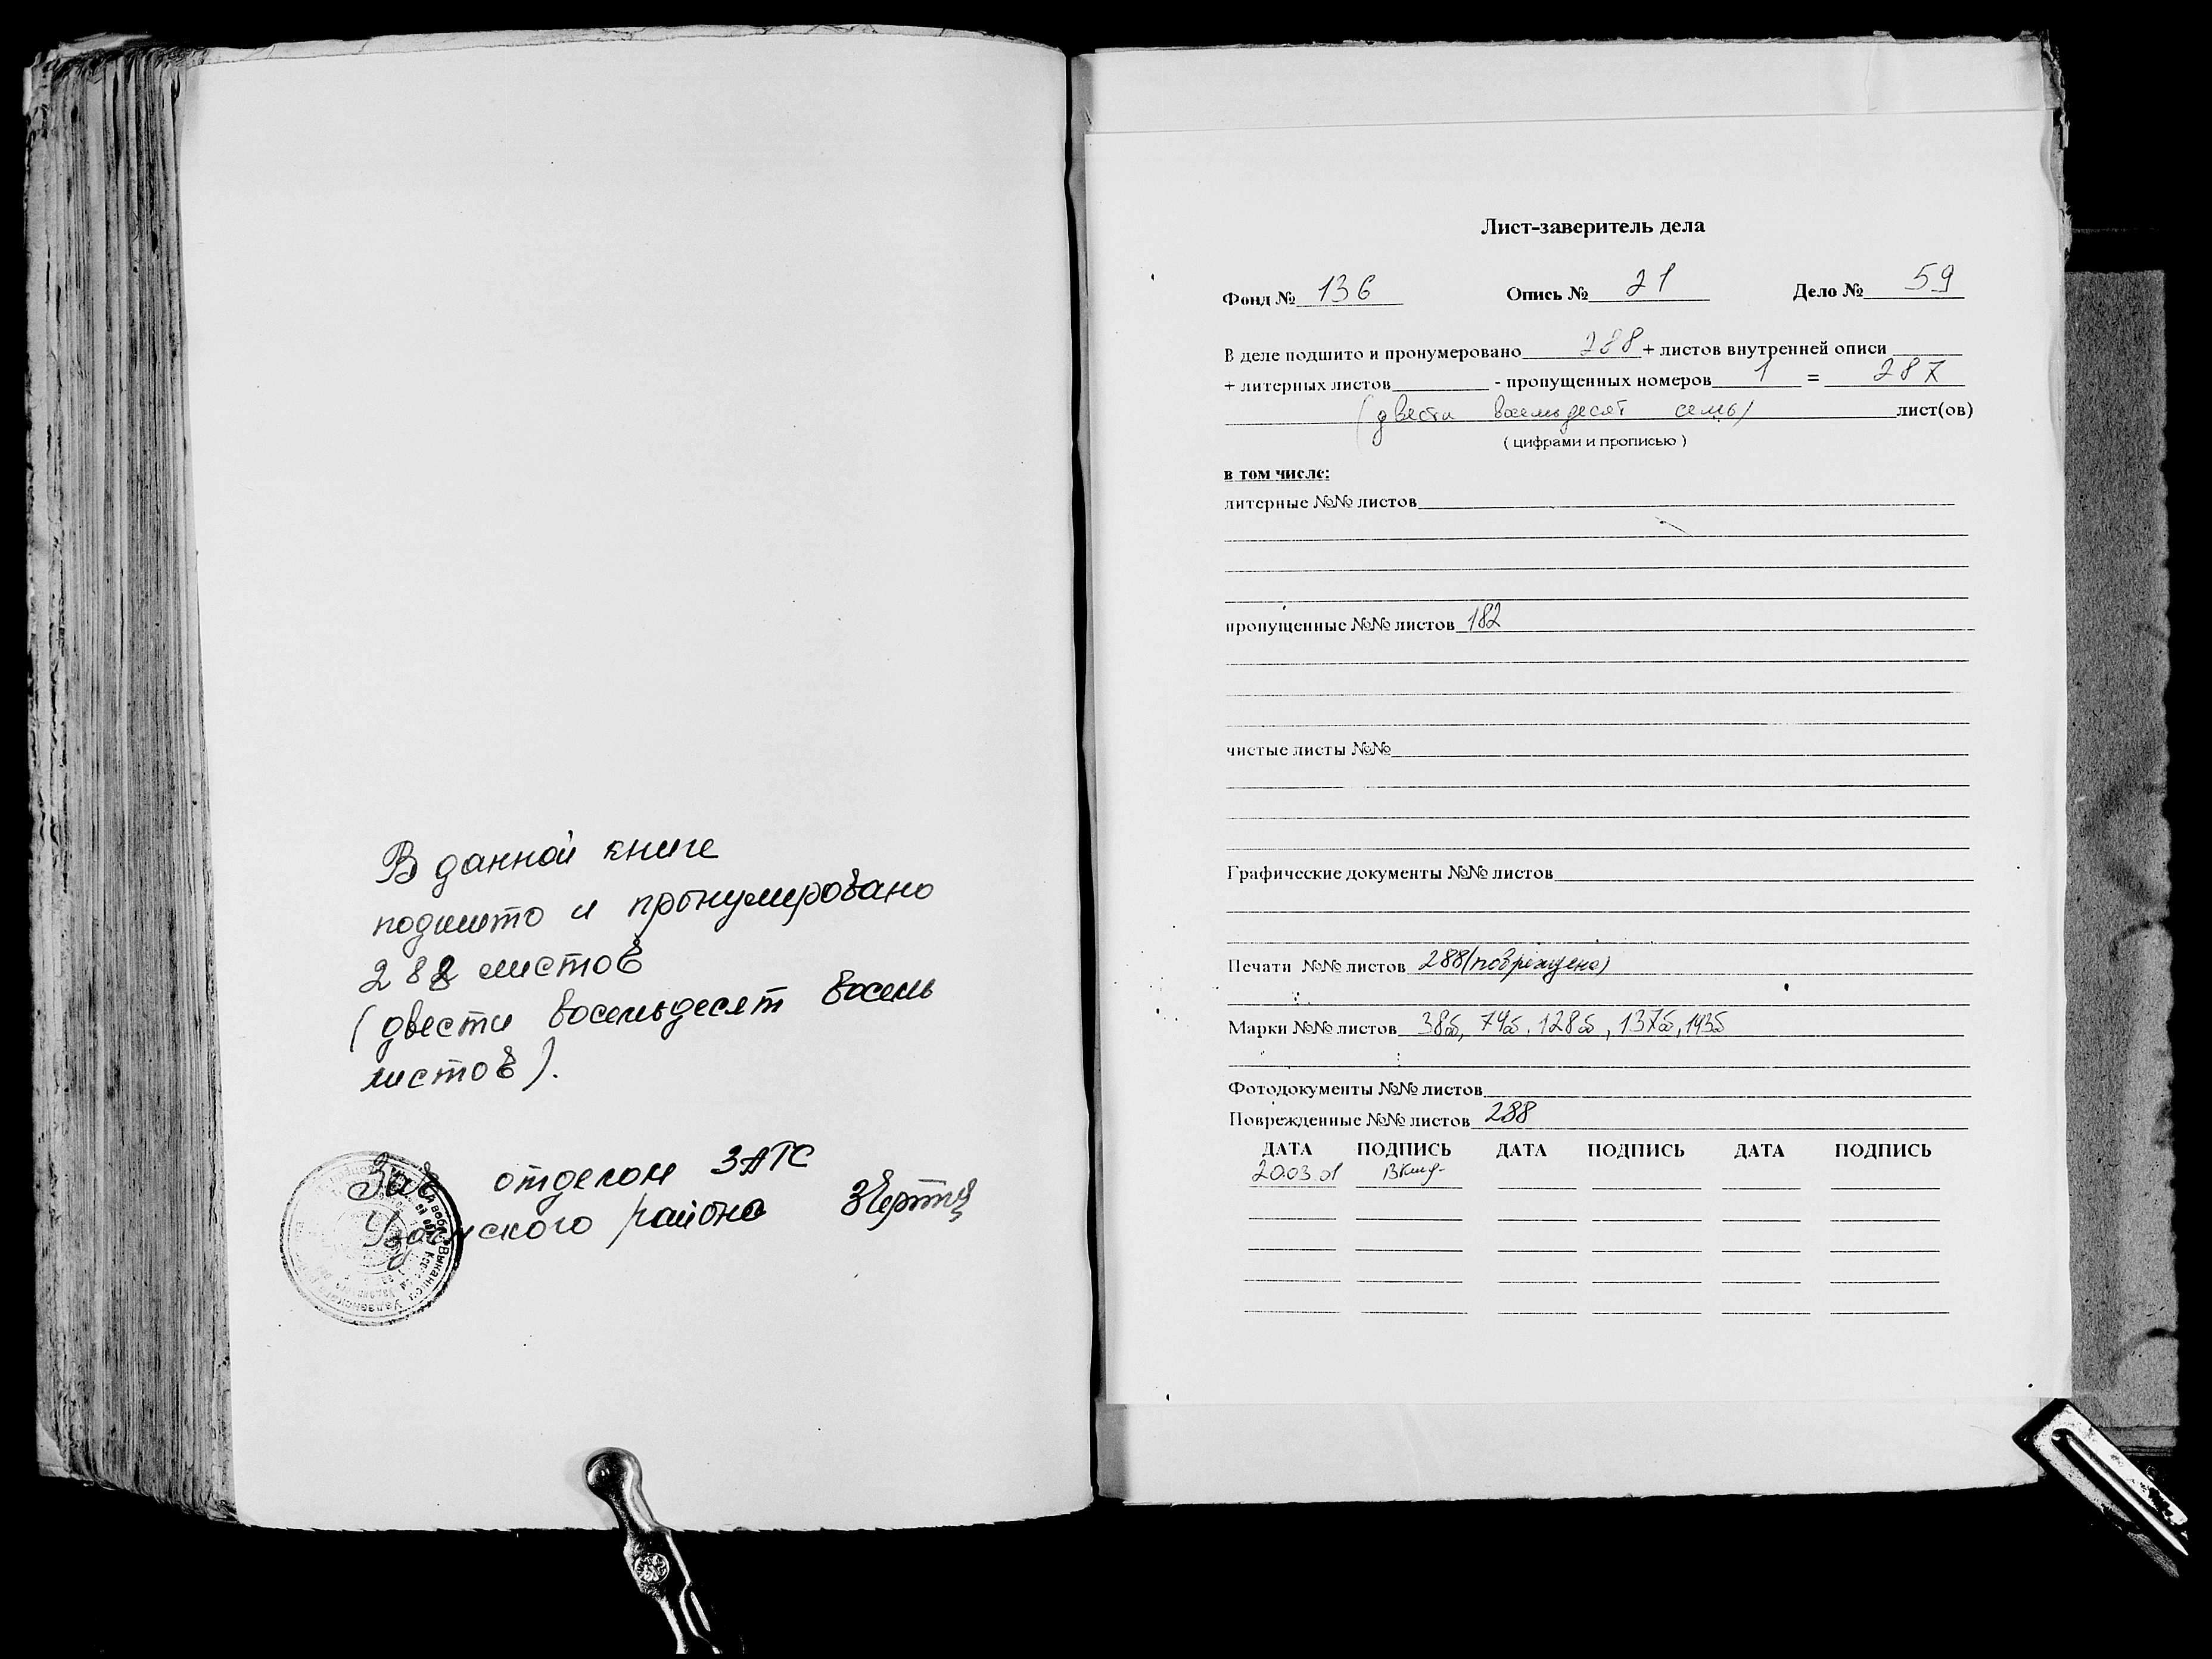 В данной книге
подшито и пронумеровано
288 листов
(двести восемьдесят восемь
листов).
Зав отделом ЗАГС
Узденского района
Лист-заверитель дела
Фонд № 136 Опись № 21 Дело № 59
В деле подшито и пронумеровано 288 + листов внутренней описи
+ литерных листов - пропущенных номеров 1 = 287
(двести восемьдесят семь) лист(ов)
( цифрами и прописью )
в том числе:
литерные №№ листов
пропущенные №№ листов 182
чистые листы №№
Графические документы №№ листов
Печати №№ листов 288(повреждена)
Марки №№ листов 38об, 74об, 128об, 137об, 143об
Фотодокументы №№ листов
Поврежденные №№ листов 288
ДАТА ПОДПИСЬ ДАТА ПОДПИСЬ ДАТА ПОДПИСЬ
20.03.01